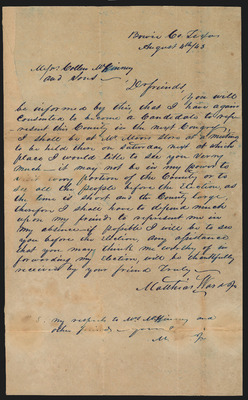 Bowie Co Texas
August 4th/43
Mssrs Collin McKinney
and Sons
D friends
you will
be informed by this, that I have again
Consented to become a Candidate to rep-
resent this County in the next Congress
I shall be at Moors Store at a meeting
to be held there on Saturday next at which
place I would like to see you very
much - it may not be in my power to
visit every portion of the County or to
see all the people before the election, as
the time is short and the County large
therefore I shall have to depend much
upon my friends to represent me in
my absence if possible I will be to see
you before the election, any assistance
that you may think me worthy of in
forwarding my election, will be thankfully
received by your friend truly
Matthias Ward
my respects to Mr McKinney and
other friends
M